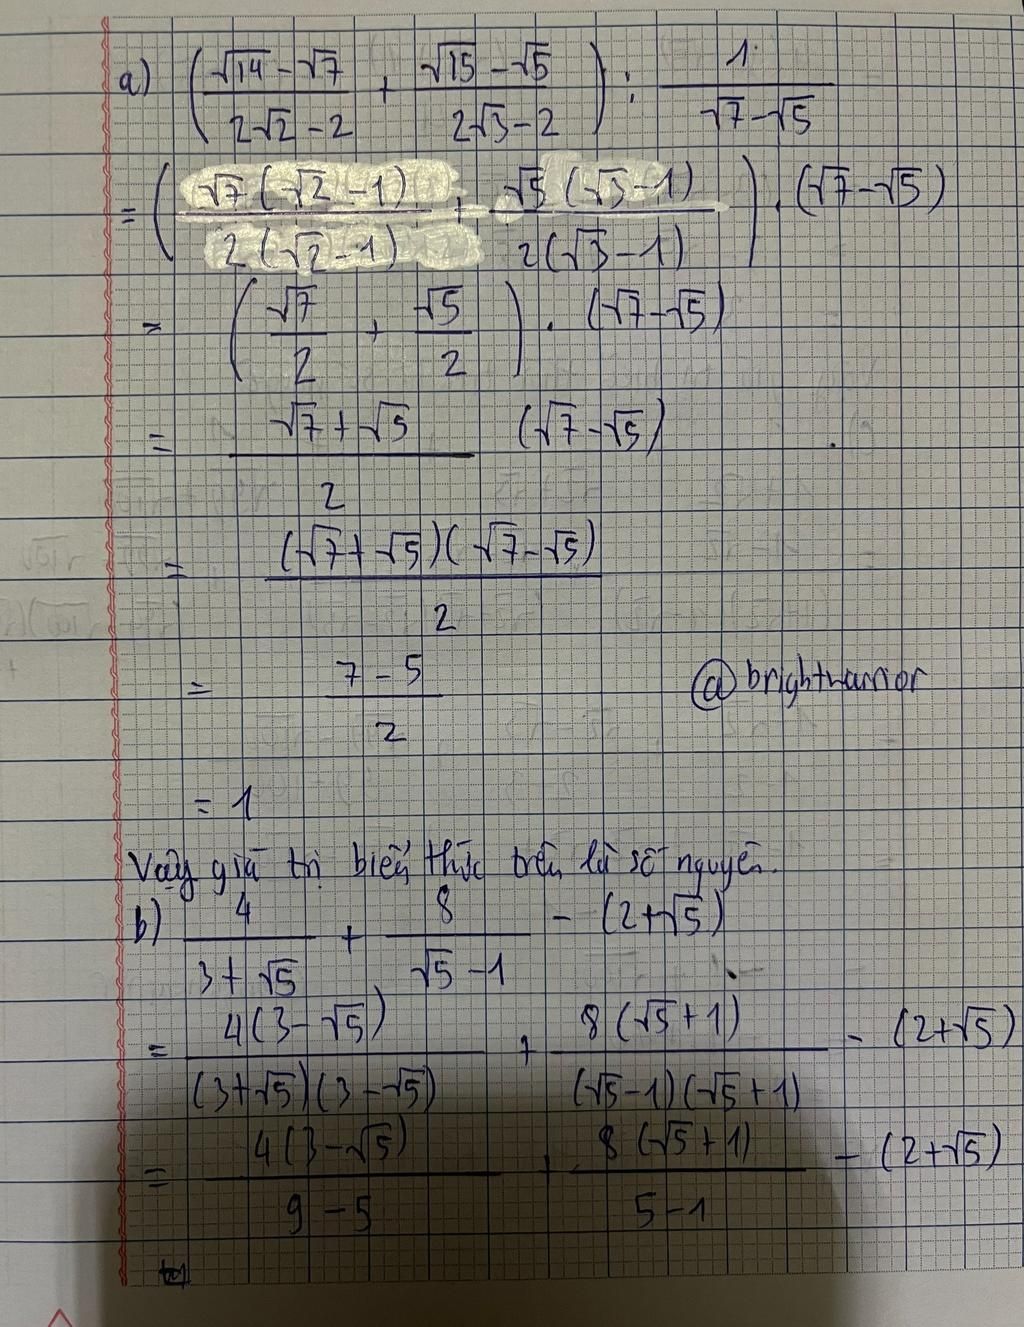 a) (√14 - √7 / 2√2 - 2 + √15 - √5 / 2√3 - 2) : 1 / √7 - √5
= (√7 (√2 - 1) / 2 (√2 - 1) + √5 (√3 - 1) / 2 (√3 - 1)) . (√7 - √5)
= (√7 / 2 + √5 / 2) . (√7 - √5)
= √7 + √5 / 2 (√7 - √5)
= (√7 + √5)(√7 - √5) / 2
= 7 - 5 / 2
@brightwarrior
= 1
Vậy giá trị biểu thức trên là số nguyên.
b) 4 / 3 + √5 + 8 / √5 - 1 - (2 + √5)
= 4 (3 - √5) / (3 + √5)(3 - √5) + 8 (√5 + 1) / (√5 - 1)(√5 + 1) - (2 + √5)
= 4 (3 - √5) / 9 - 5 + 8 (√5 + 1) / 5 - 1 - (2 + √5)